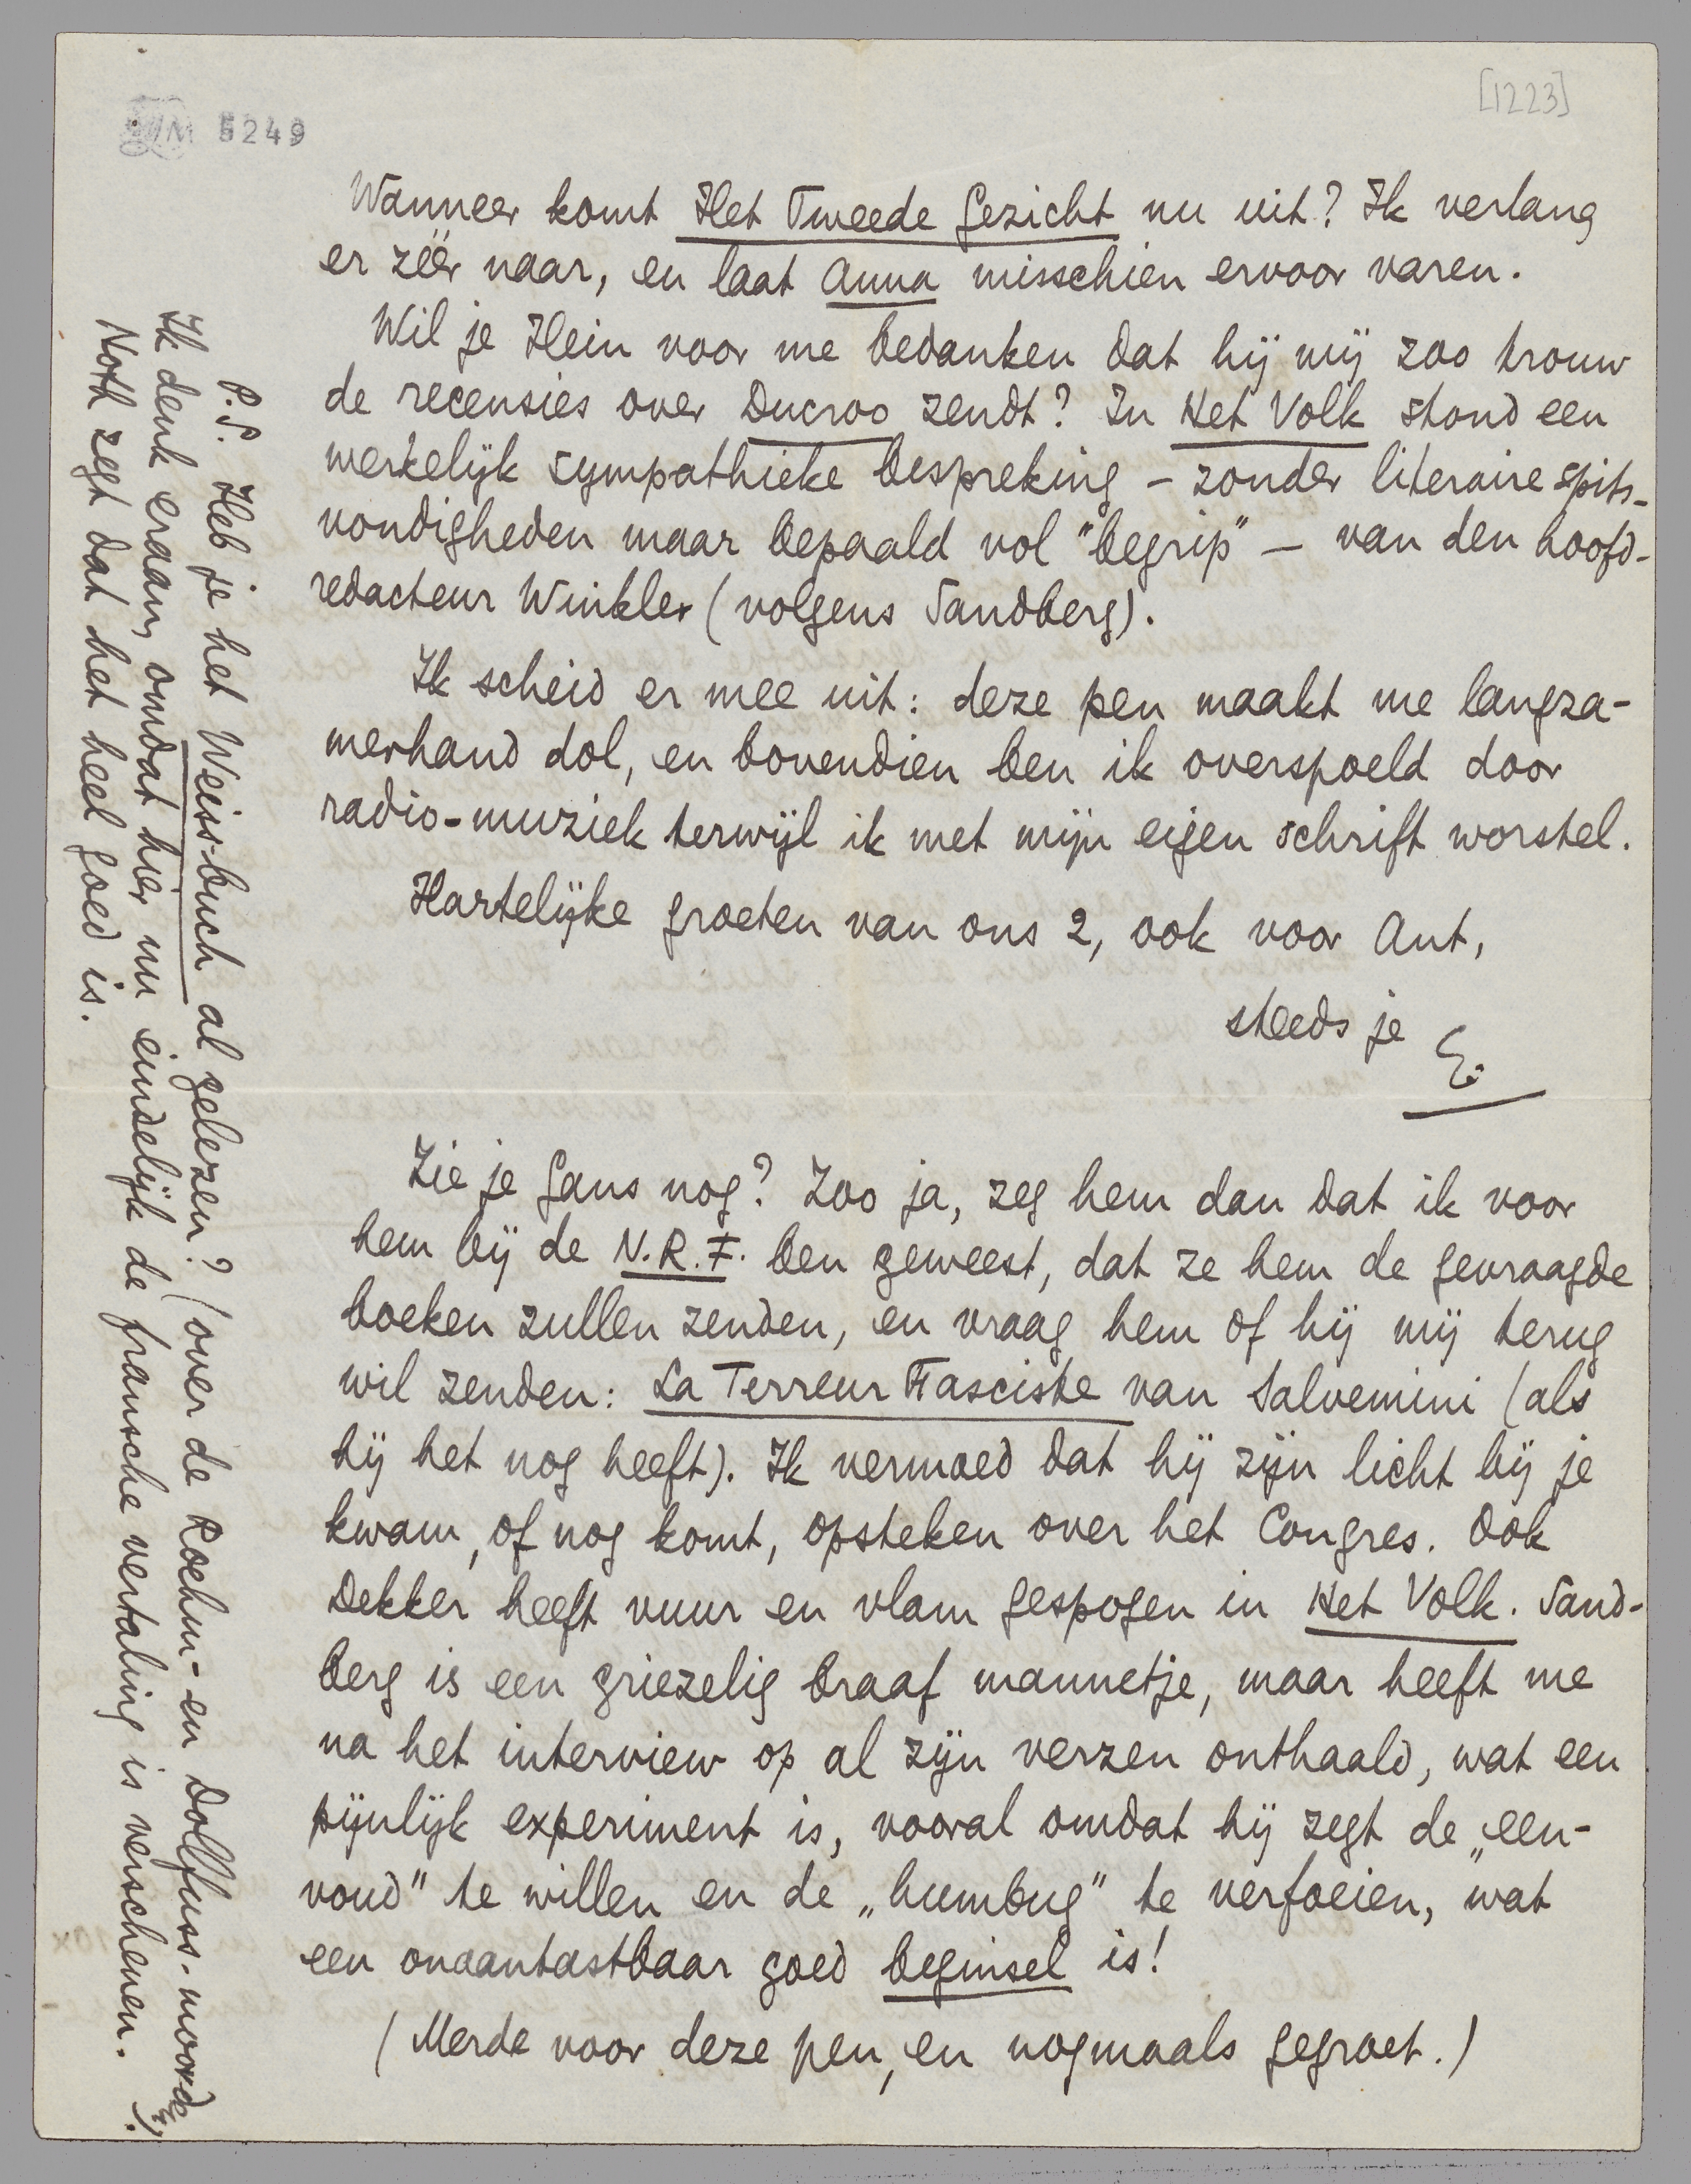 [1223]
LM 5249
Wanneer komt Het Tweede Gezicht nu uit? Ik verlang
er zéér naar, en laat Anna misschien ervoor varen.
Wil je Hein voor me bedanken dat hij mij zoo trouw
de recensies over Ducroo zendt? In Het Volk stond een
werkelijk sympathieke bespreking – zonder literaire spits-
vondigheden maar bepaald vol "begrip" – van den hoofd-
redacteur Winkler (volgens Sandberg).
Ik scheid er mee uit: deze pen maakt me langza-
merhand dol, en bovendien ben ik overspoeld door
radio-muziek terwijl ik met mijn eigen schrift worstel.
Hartelijke groeten van ons 2, ook voor Ant,
steeds je
E.
Zie je Gans nog? Zoo ja, zeg hem dan dat ik voor
hem bij de N.R.F. ben geweest, dat ze hem de gevraagde
boeken zullen zenden, en vraag hem of hij mij terug
wil zenden: La Terreur Fasciste van Salvemini (als
hij het nog heeft). Ik vermoed dat hij zijn licht bij je
kwam, of nog komt, opsteken over het Congres. Ook
Dekker heeft vuur en vlam gespogen in Het Volk. Sand-
berg is een griezelig braaf mannetje, maar heeft me
na het interview op al zijn verzen onthaald, wat een
pijnlijk experiment is, vooral omdat hij zegt de „een-
voud" te willen en de „humbug" te verfoeien, wat
een onaantastbaar goed beginsel is!
(Merde voor deze pen, en nogmaals gegroet.)
P.S. Heb je het Weiss-buch al gelezen? (over de Roehm- en Dolfuss-moorden).
Ik denk eraan, omdat hier nu eindelijk de fransche vertaling is verschenen.
Noth zegt dat het heel goed is.